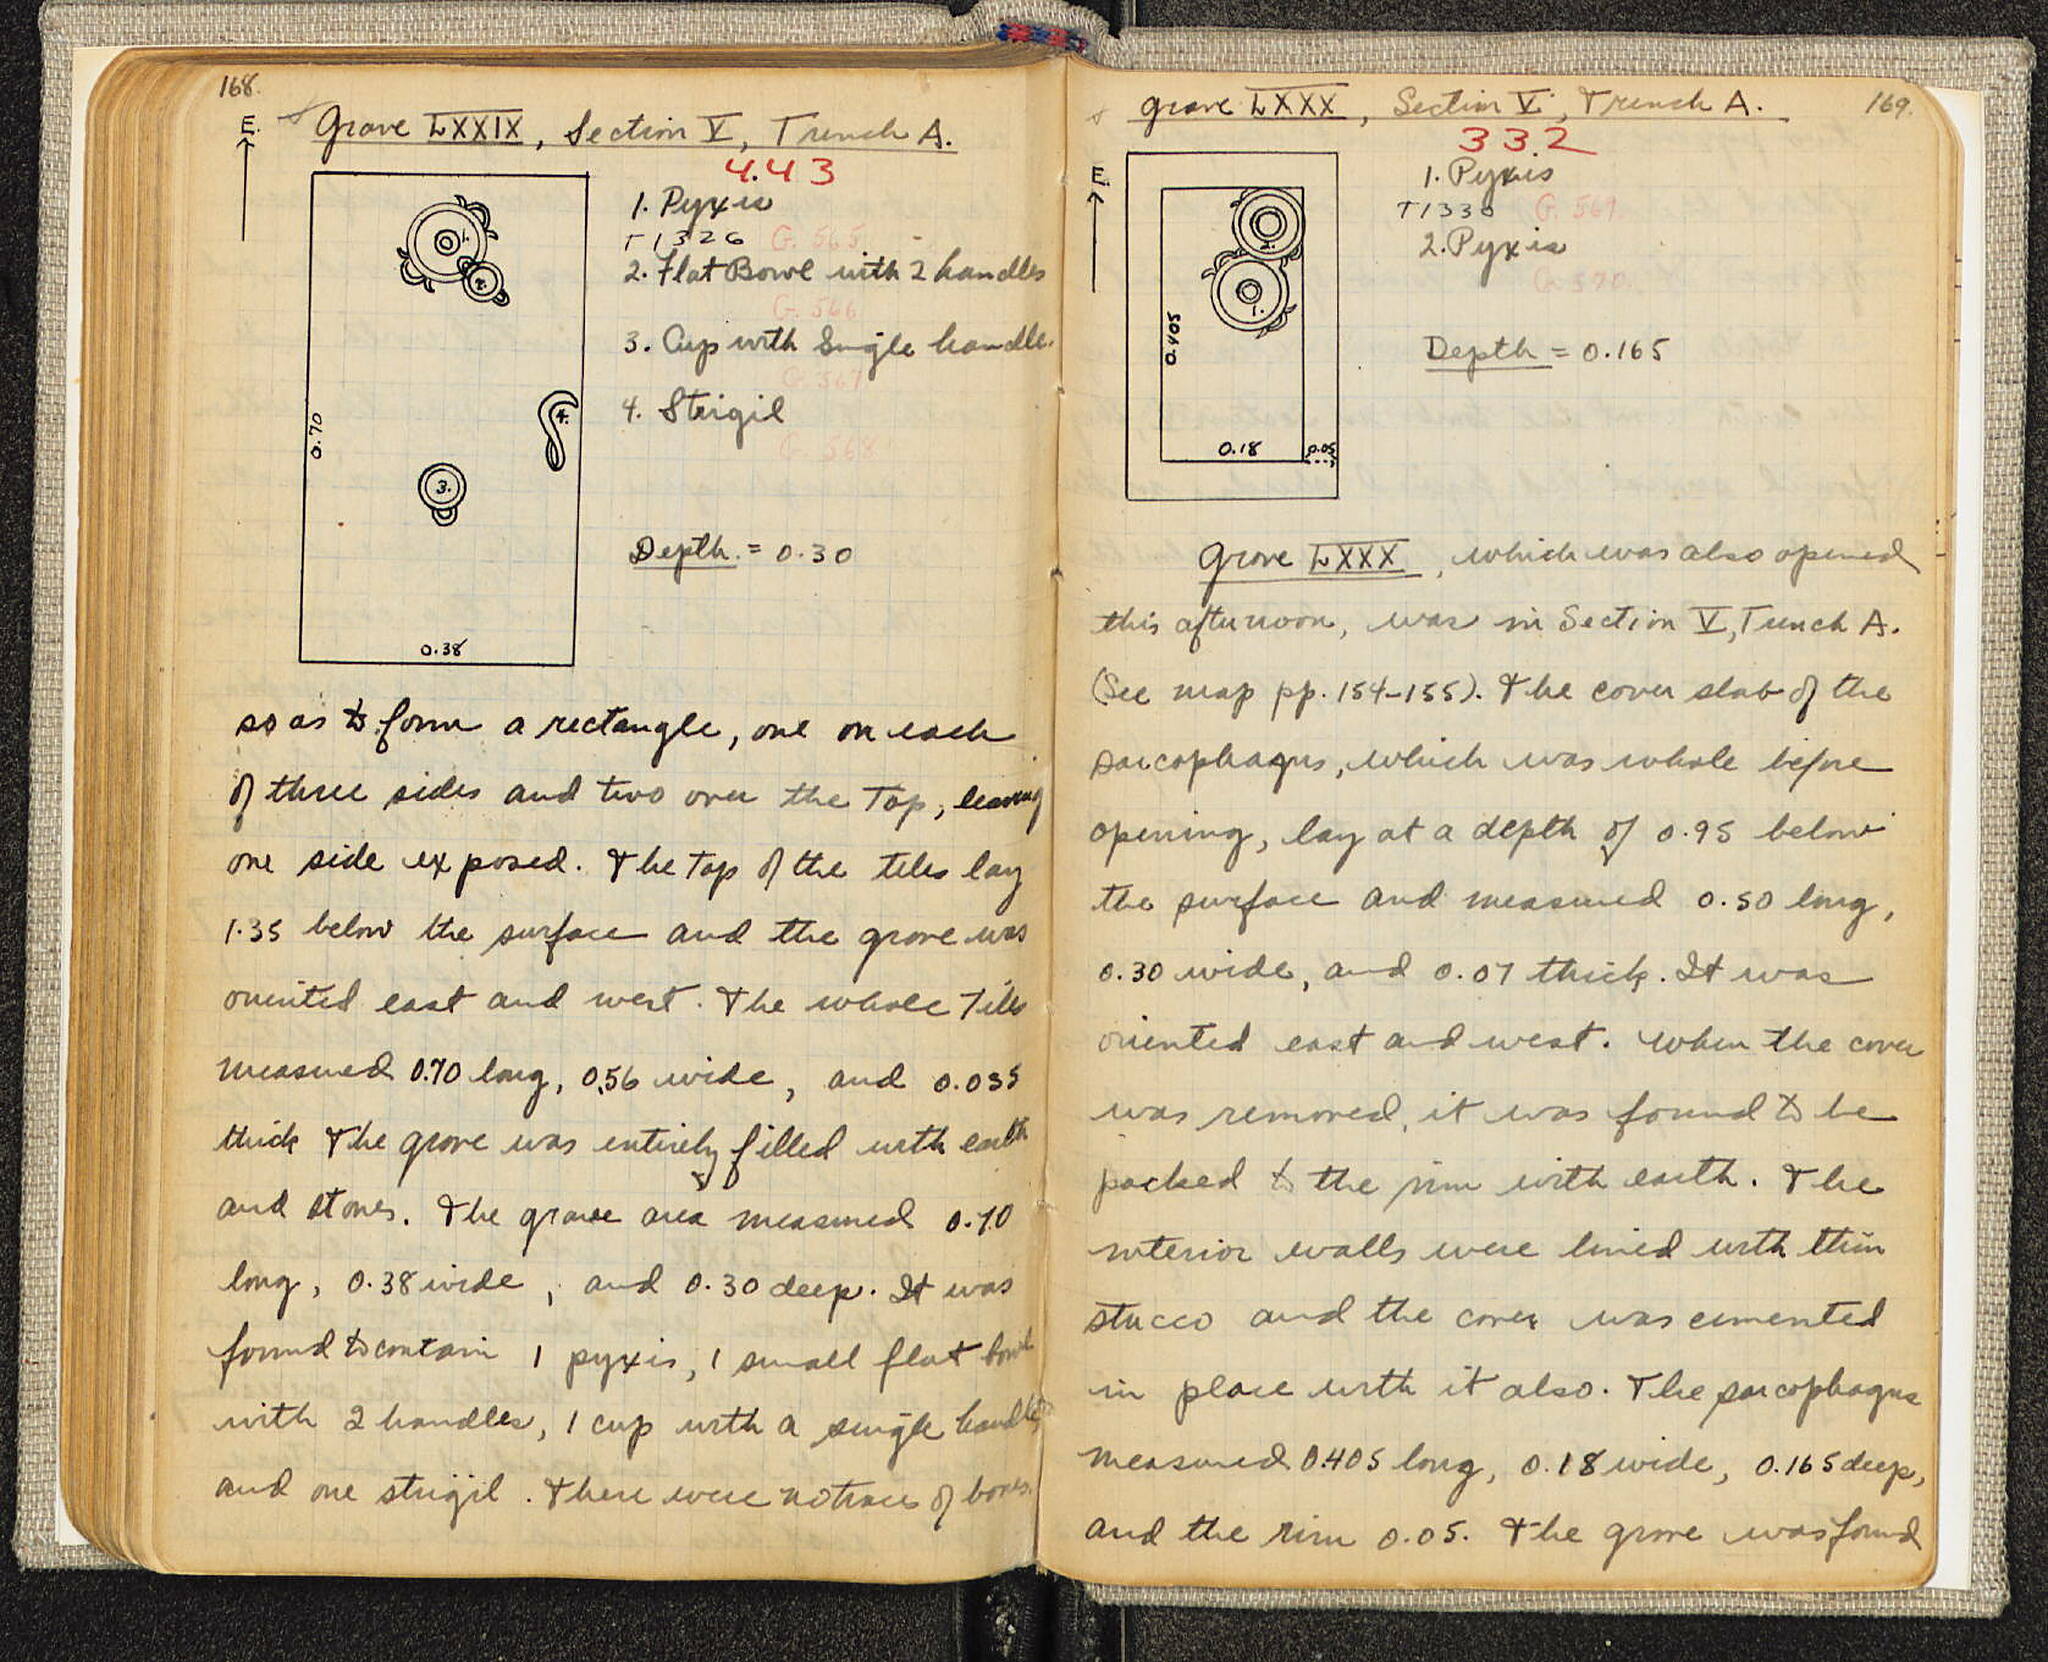 168.
Grave LXXIX, Section V, Trench A.
443
E.
1. Pyxis
T1326 G. 565.
2. Flat Bowl with 2 handles
G. 566
3. Cup with Single handle.
G. 567
4. Strigil
G. 568
1.
2.
3.
4.
0.70
0.38
Depth. = 0.30
so as to form a rectangle, one on each
of three sides and two over the Top, leaving
one side exposed. The Top of the tiles lay
1.35 below the surface and the grave was
oriented east and west. The whole Tiles
measured 0.70 long, 0.56 wide, and 0.035
thick The grave was entirely filled with earth
and stones. The grave area measured 0.70
long, 0.38 wide, and 0.30 deep. It was
found to contain 1 pyxis, 1 small flat bowl
with 2 handles, 1 cup with a single handle,
and one strigil. There were no traces of bones.
169.
Grave LXXX, Section V, Trench A.
332
E.
1. Pyxis
T1330 G. 569.
2. Pyxis
G. 570.
2.
1.
0.405
0.18
0.05
Depth = 0.165
Grave LXXX, which was also opened
this afternoon, was in Section V, Trench A.
(See map pp. 154-155). The cover slab of the
sarcophagus, which was whole before
opening, lay at a depth of 0.95 below
the surface and measured 0.50 long,
0.30 wide, and 0.07 thick. It was
oriented east and west. When the cover
was removed, it was found to be
packed to the rim with earth. The
interior walls were lined with thin
stucco and the cover was cemented
in place with it also. The sarcophagus
measured 0.405 long, 0.18 wide, 0.165 deep,
and the rim 0.05. The grave was found